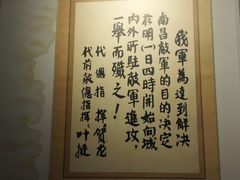 我军為达到解决
南昌敵軍的目的决定
於明一日四時開始向城
内外所駐敵軍進攻，
一舉而殲之！
代總指揮賀龙
代前敵總指揮叶挺